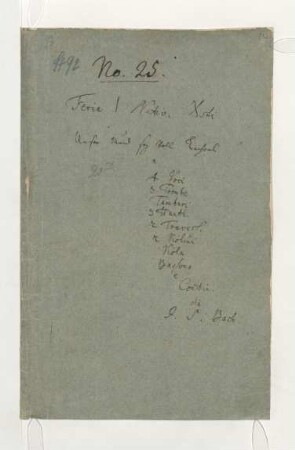 No. 25.
Feria 1 Nativ. Xsti
Unser Mund sey voll Lachens
a
4 Voci
3 Trombe
Tamburi
3 Hautb.
2 Travers.
2 Violini
Viola
Bassono
e
Contin.
da
J. S. Bach